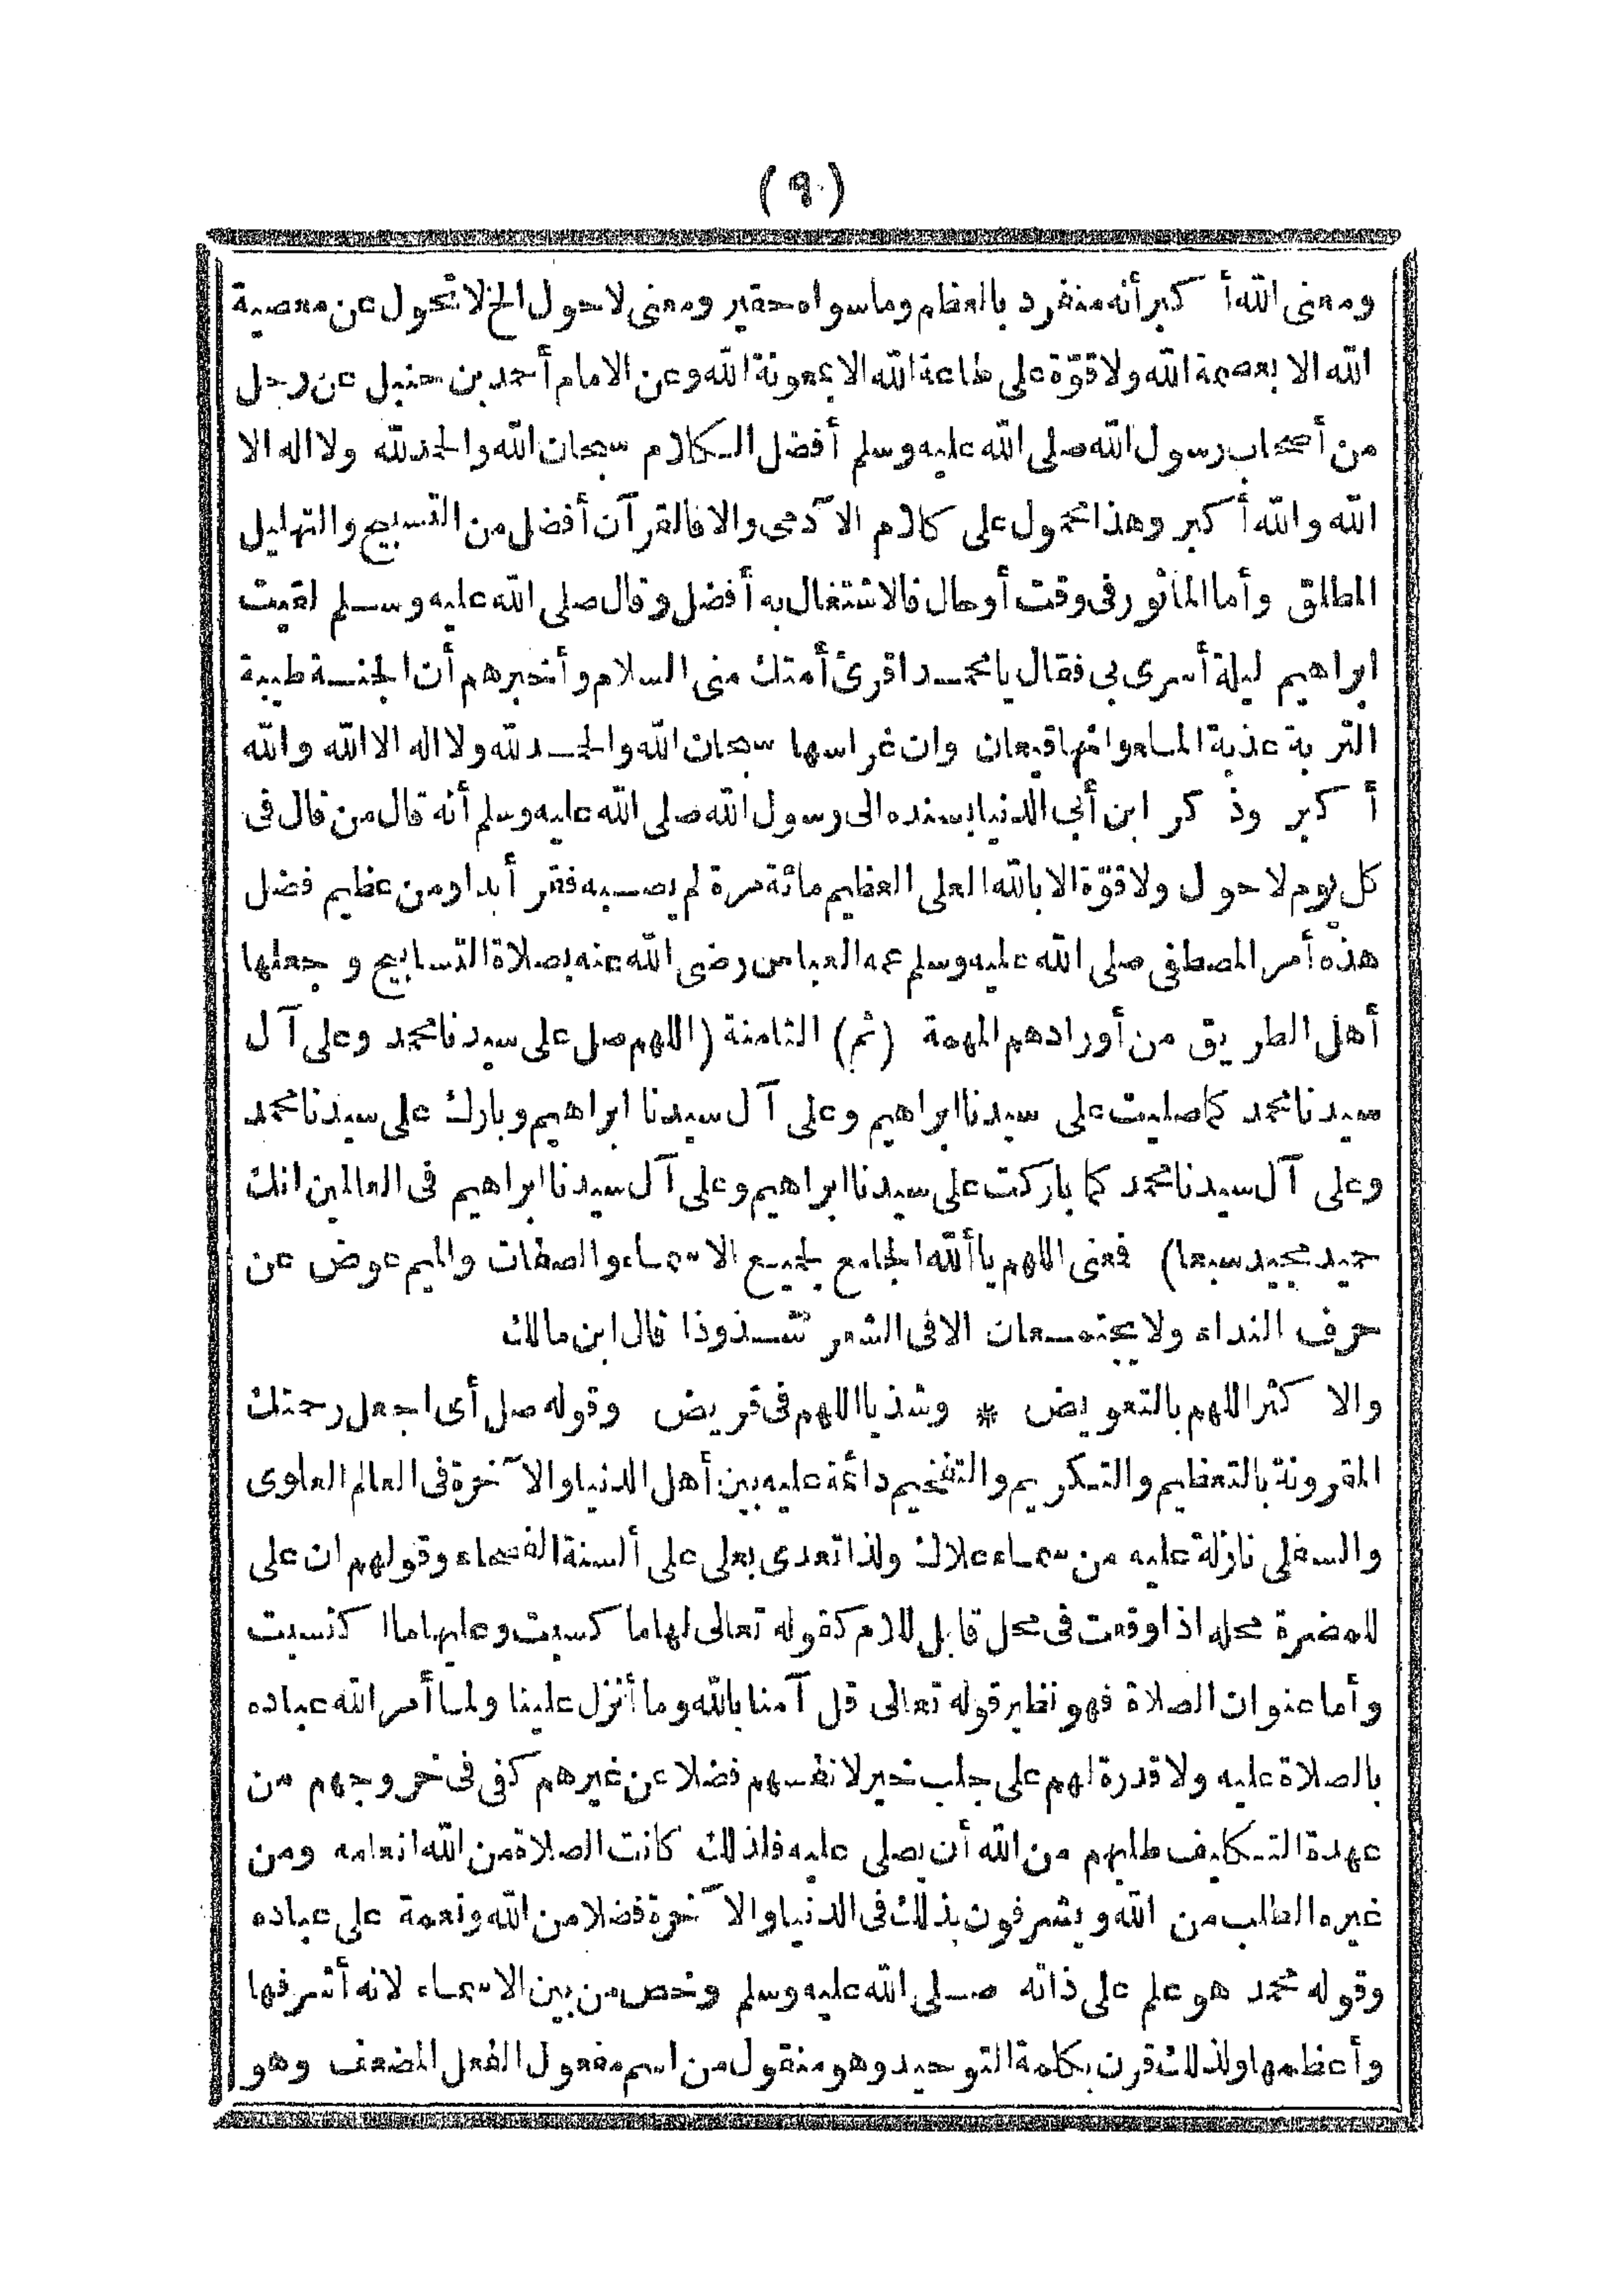 (٩)
ومعنى الله أكبر أنه منفرد بالعظام وما سواه حقير ومعنى لا حول الخ لا تحول عن معصية
الله الا بعصمة الله ولا قوّة على طاعة الله الا بمعونة الله وعن الامام أحمد بن حنبل عن رجل
من أصحاب رسول الله صلى الله عليه وسلم أفضل الكلام سبحان الله والحمد لله ولا اله الا
الله والله أكبر وهذا محمول على كلام الآدمى والا فالقرآن أفضل من التسبيح والتهليل
المطلق وأما المأثور فى وقت أو حال فالاشتغال به أفضل وقال صلى الله عليه وسلم لقيت
ابراهيم ليلة أسرى بى فقال يا محمد اقرئ أمتك منى السلام وأخبرهم أن الجنة طيبة
التربة عذبة الماء وانها قيعان وان غراسها سبحان الله والحمد لله ولا اله الا الله والله
أكبر وذكر ابن أبى الدنيا بسنده الى رسول الله صلى الله عليه وسلم أنه قال من قال فى
كل يوم لا حول ولا قوّة الا بالله العلى العظيم مائة مرة لم يصبه فقر أبدا ومن عظيم فضل
هذه أمر المصطفى صلى الله عليه وسلم عمه العباس رضى الله عنه بصلاة التسابيح وجعلها
أهل الطريق من أورادهم المهمة (ثم) الثامنة (اللهم صل على سيدنا محمد وعلى آل
سيدنا محمد كما صليت على سيدنا ابراهيم وعلى آل سيدنا ابراهيم وبارك على سيدنا محمد
وعلى آل سيدنا محمد كما باركت على سيدنا ابراهيم وعلى آل سيدنا ابراهيم فى العالمين انك
حميد مجيد سبعا) فمعنى اللهم يا ألله الجامع لجميع الاسماء والصفات والميم عوض عن
حرف النداء ولا يجتمعان الا فى الشعر شذوذا قال ابن مالك
والاكثر اللهم بالتعويض * وشذ يا اللهم فى قريض وقوله صل أى اجعل رحمتك
المقرونة بالتعظيم والتكريم والتفخيم دائمة عليه بين أهل الدنيا والآخرة فى العالم العلوى
والسفلى نازلة عليه من سماء علاك ولذا تعدى بعلى على ألسنة الفصحاء وقولهم ان على
للمضرة محله اذا وقعت فى محل قابل للام كقوله تعالى لها ما كسبت وعليها ما اكتسبت
وأما عنوان الصلاة فهو نظير قوله تعالى قل آمنا بالله وما أنزل علينا ولما أمر الله عباده
بالصلاة عليه ولا قدرة لهم على جلب خير لانفسهم فضلا عن غيرهم كفى فى خروجهم من
عهدة التكليف طلبهم من الله أن يصلى عليه فلذلك كانت الصلاة من الله انعامه ومن
غيره الطلب من الله ويشرفون بذلك فى الدنيا والآخرة فضلا من الله ونعمة على عباده
وقوله محمد هو علم على ذاته صلى الله عليه وسلم وخص من بين الاسماء لانه أشرفها
وأعظمها ولذلك قرن بكلمة التوحيد وهو منقول من اسم مفعول الفعل المضعف وهو